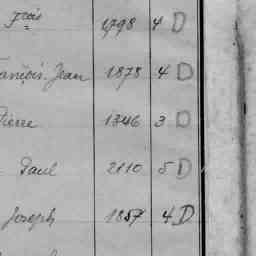 Frois 1798 4 D
François-Jean 1878 4 D
Pierre 1346 3 D
Paul 2110 5 D
Joseph 1857 4 D